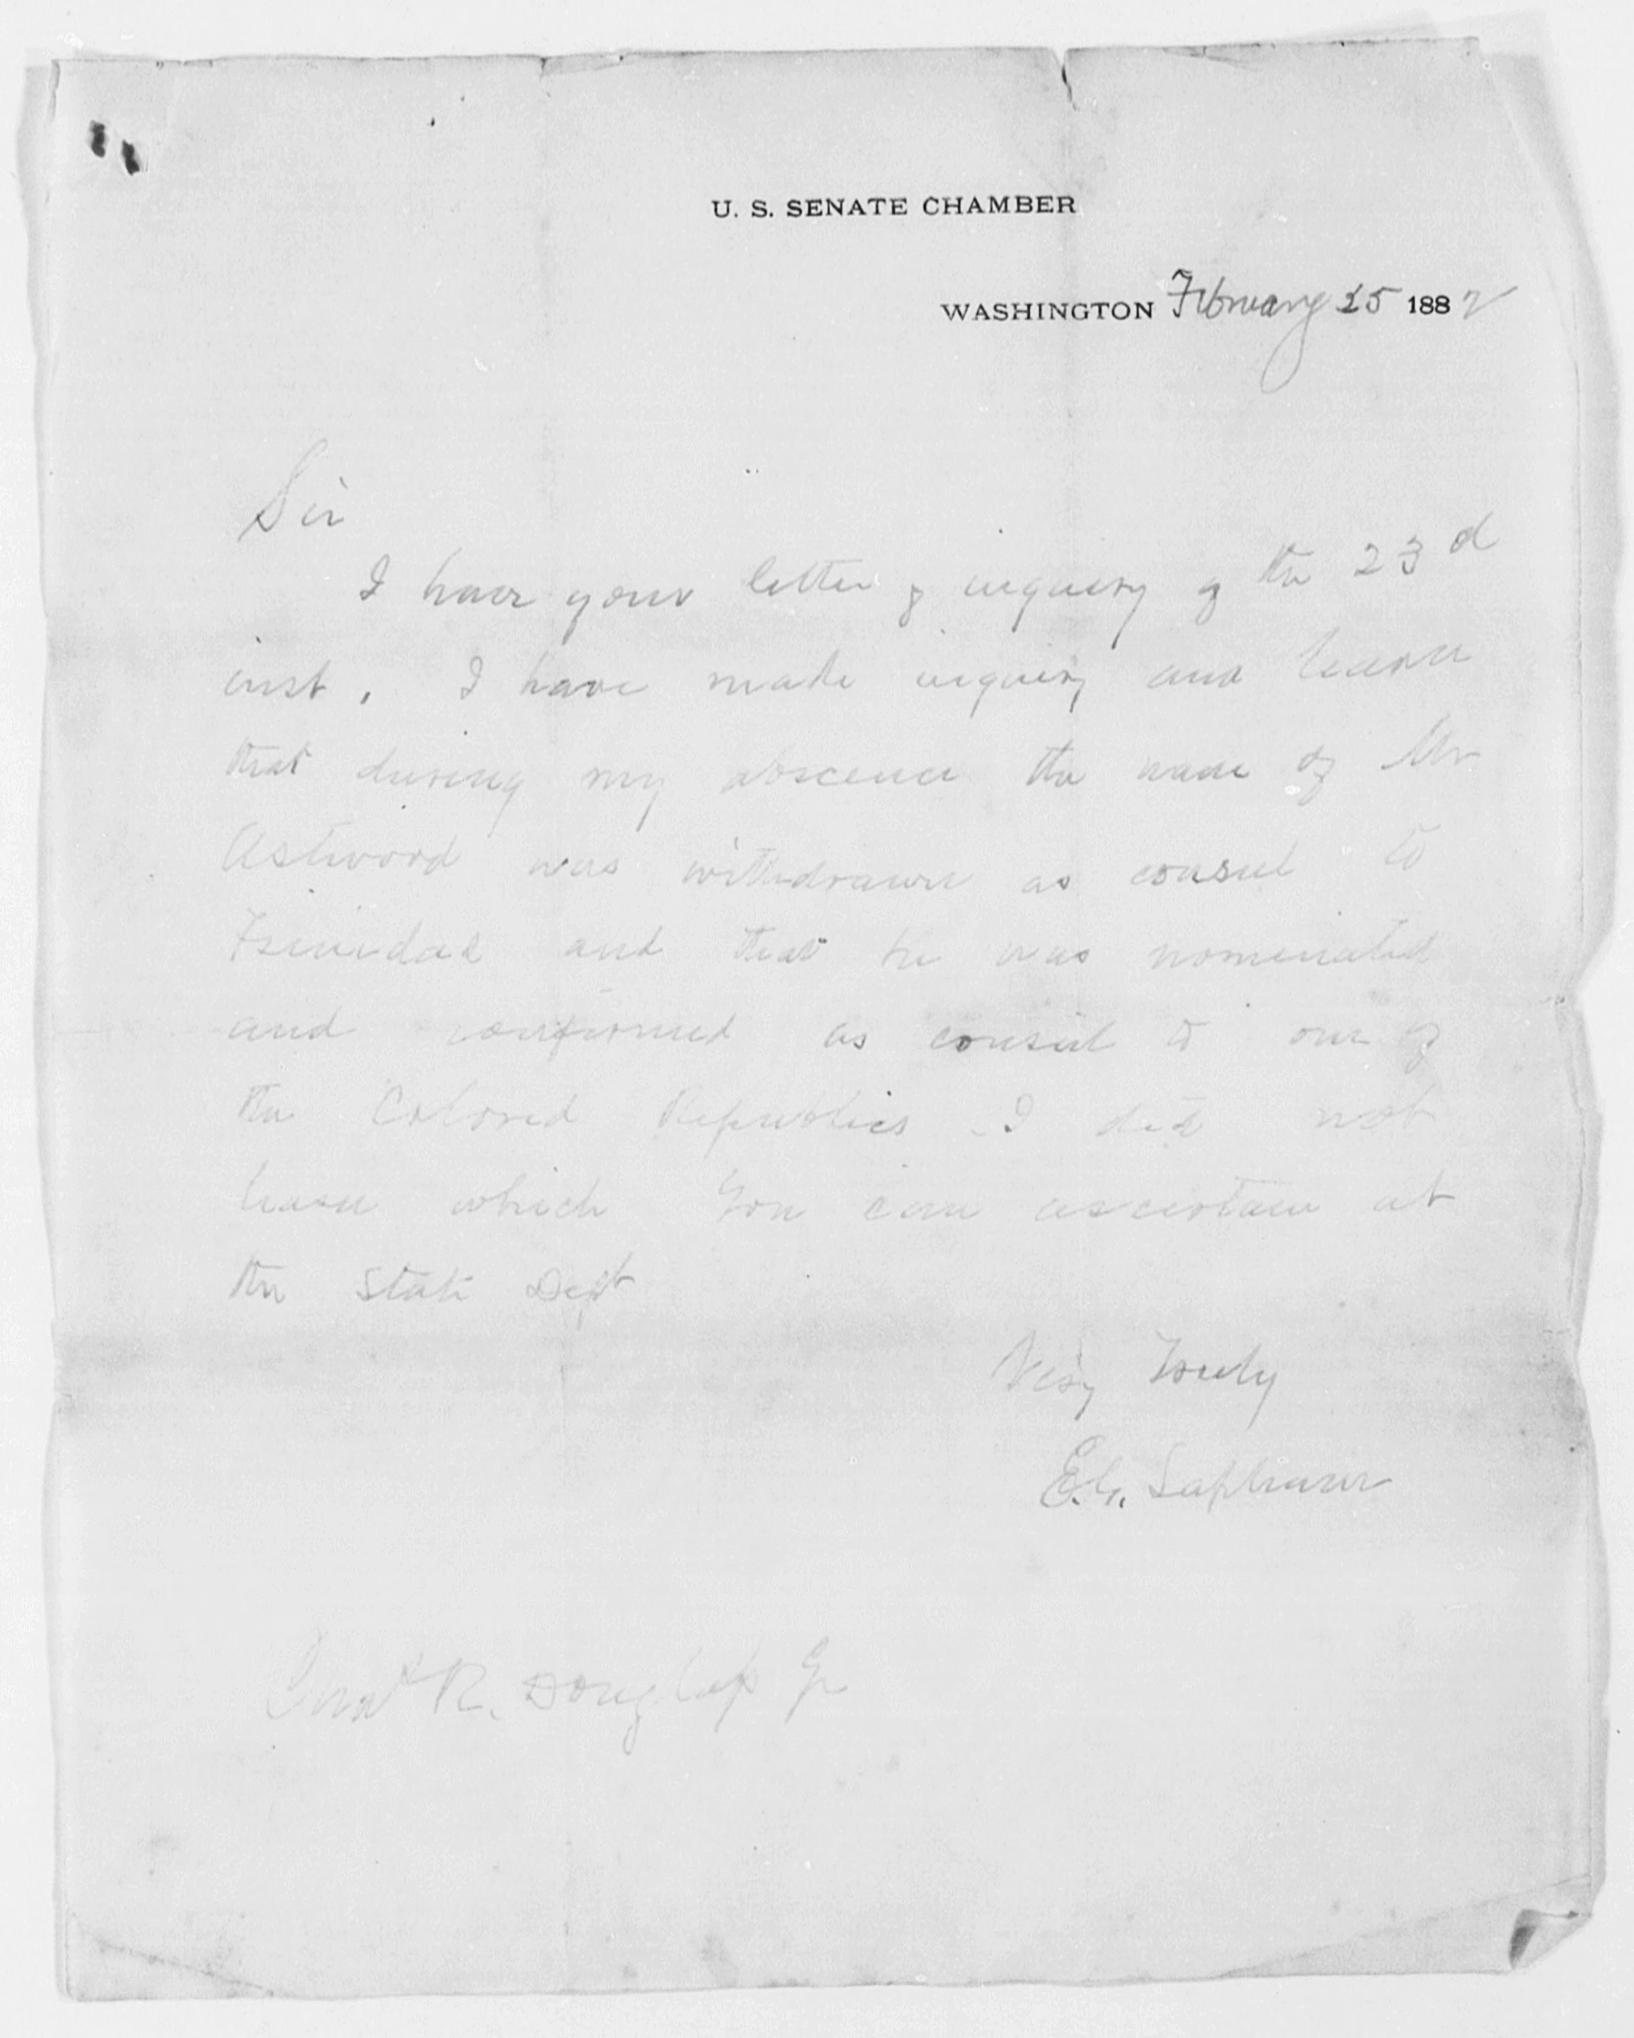 U. S. SENATE CHAMBER
WASHINGTON February 25 1882
Sir
I have your letter of inquiry of the 23d
inst. I have made inquiry and learn
that during my abscence the name of Mr
Astwood was withdrawn as consul to
Trinidad and that he was nominated
and confirmed as consul to one of
the Colored Republics I did not
learn which You can ascertain at
the State Dept
Very Truly
E.G. Lapham
R. Douglass Jr